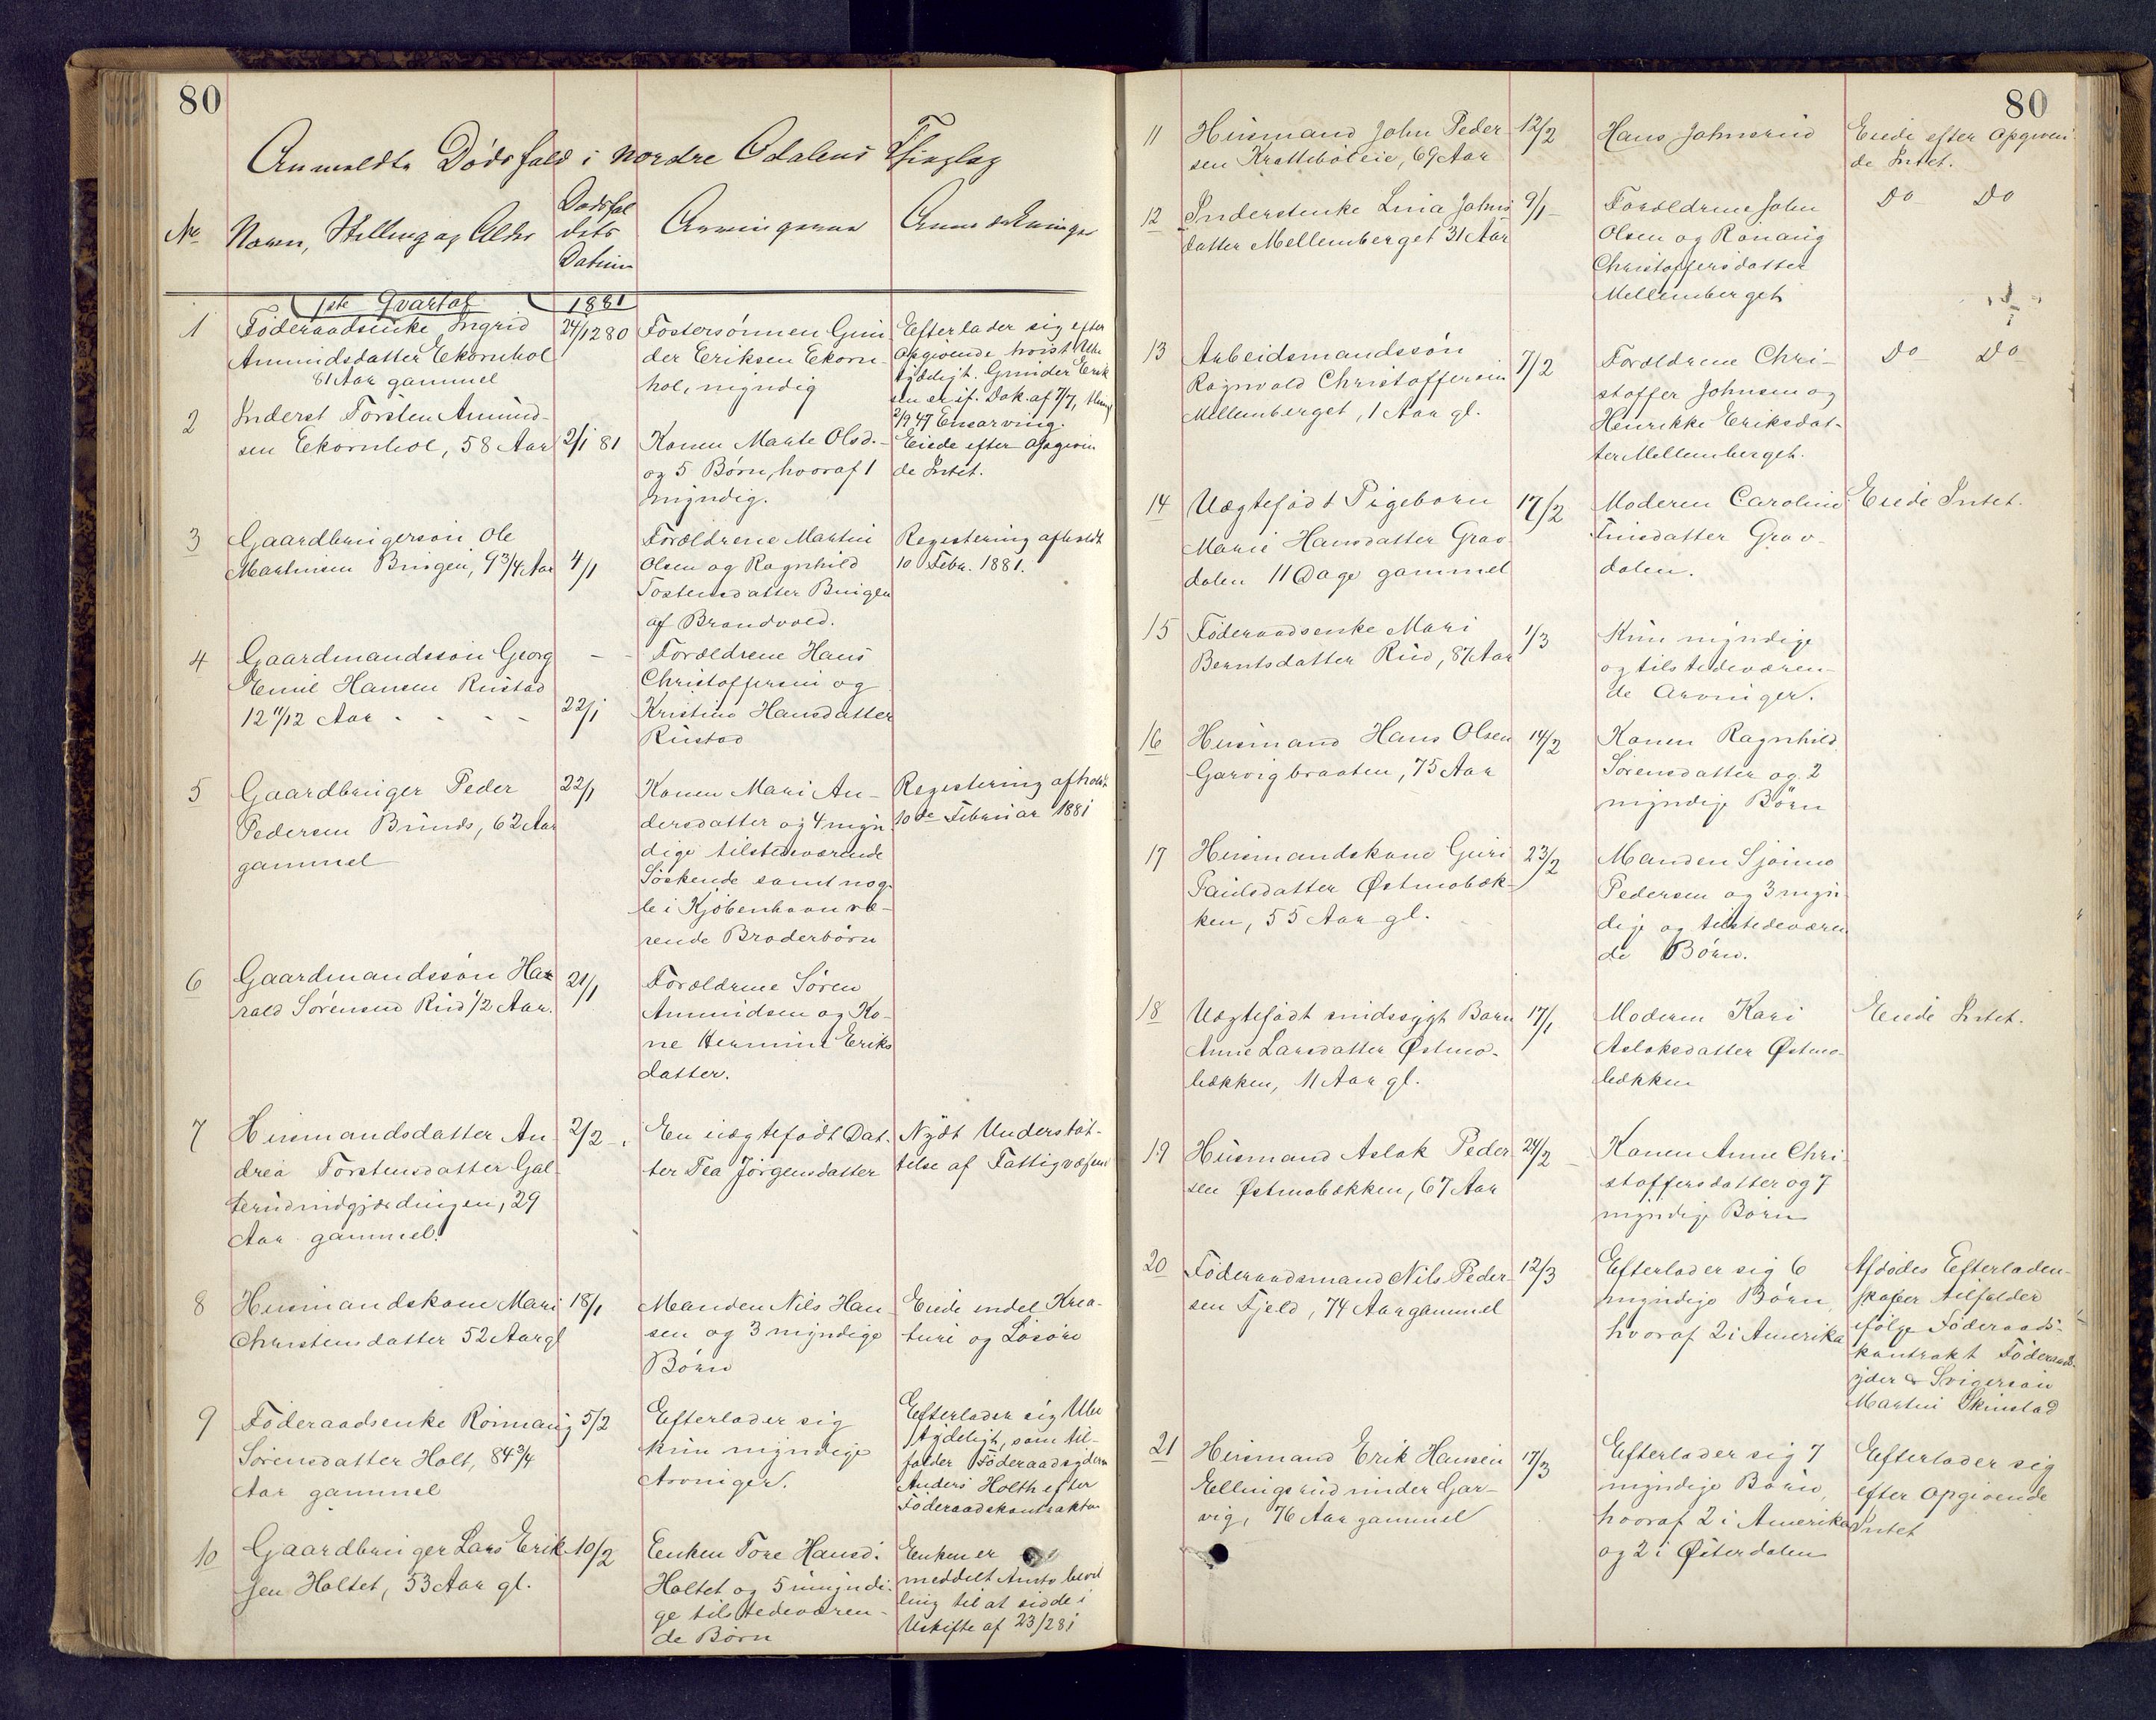 80
Anmeldte Dödsfald i nordre Odalens Thinglag
No
Navn, Stilling og Alder
Dødsfal
dets
Datum
Arvingerne
Anmærkninger
1ste Qvartal
1881
1
Föderaadsenke Ingrid
Amundsdatter Ekornhol
81 Aar gammel
24/12 80
Fostersönnen Gun
der Eriksen Ekorn-
hol, myndig
Efterlader sig efter
Opgivende höist Ube
tydeligt. Gunder Erik
sen er if. Dok. af 7/7,
2/9 47 Enearving.
2
Inderst Torsten Amund-
sen Ekornhol, 58 Aar
2/1 81
Konen Marte Olsd.
og 5 Börn, hvoraf 1
myndig.
Eiede efter Opgiven
de Intet.
3
Gaardbrugersön Ole
Martinsen Bingen, 9 3/4 Aar
4/1
Forældrene Martin
Olsen og Ragnhild
Tostensdatter Bingen
af Brandvold.
Registering afholdt
10 Febr. 1881.
4
Gaardmandssön Georg
Emil Hansen Rustad
12 11/12 Aar - - - -
22/1
Forældrene Hans
Christoffersen og
Kristine Hansdatter
Rustad
5
Gaardbruger Peder
Pedersen Bunds, 62 Aar
gammel
22/1
Konen Mari An-
dersdatter og 4 myn
dige tilstedeværende
Söskende samt nog-
le i Kjöbenhavn væ-
rende Broderbörn
Registering afholdt
10de Februar 1881
6
Gaardmandssön Har
rald Sörensen Rud 1/2 Aar.
21/1
Forældrene Sören
Amundsen og Ko-
ne Hermine Eriks
datter.
7
Husmandsdatter An-
drea Torstensdatter Gal-
terudnedgjærdingen, 29
Aar gammel.
2/2
En uægtefödt Dat-
ter Tea Jörgensdatter
Nydt Understöt-
telse af Fattigvæsenet
8
Husmandskone Mari
Christensdatter 52 Aar gl
18/1
Manden Nils Han-
sen og 3 myndige
Börn
Eiede endel Krea-
turer og Lösöre
9
Föderaadsenke Rönnaug
Sörensdatter Holt, 84 3/4
Aar gammel
5/2
Efterlader sig
kun myndige
Arvinger.
Efterlader sig Ube
tydeligt, som til-
falder Föderaadsyderen
Anders Holth efter
Föderaadskontrakten
10
Gaardbruger Lars Erik
sen Holtet, 53 Aar gl.
10/2
Enken Tore Hansd.
Holtet og 5 umyndi-
ge tilstedeværen-
de Börn
Enken er
meddelt Amtsbevil
ling til at sidde i
Uskifte af 23/2 81
80
11
Husmand John Peder
sen Krattebóleie, 69 Aar
12/2
Hans Johnsrud
Eiede efter Opgiven
de Intet.
12
Inderstenke Lina Johns
datter Mellemberget 31 Aar
9/1
Forældrene John
Olsen og Rönaug
Christoffersdatter
Mellemberget
Do Do
13
Arbeidsmandssön
Ragnvald Christoffersen
Mellemberget, 1 Aar gl.
7/2
Forældrene Chri-
stoffer Johnsen og
Henrikke Eriksdat-
ter Mellemberget.
Do Do
14
Uægtefödt Pigebarn
Marie Hansdatter Grav
dalen 11 Dage gammel
17/2
Moderen Caroline
Finsdatter Grav-
dalen.
Eiede Intet.
15
Föderaadsenke Mari
Berntsdatter Rud, 87 Aar
1/3
Kun myndige
og tilstedeværen
de Arvinger.
16
Husmand Hans Olsen
Garvigbraaten, 75 Aar
14/2
Konen Ragnhild
Sörensdatter og 2
myndige Börn
17
Husmandskone Guri
Paulsdatter Østmobæk-
ken, 55 Aar gl.
23/2
Manden Sjönne
Pedersen og 3 myn
dige og tilstedeværen
de Börn.
18
Uægtefödt sindssygt Barn
Anne Larsdatter Østmo-
bækken, 11 Aar gl.
17/1
Moderen Kari
Aslaksdatter Østmo-
bækken
Eiede Intet.
19
Husmand Aslak Peder
sen Østmobækken, 67 Aar
24/2
Konen Anne Chri-
stoffersdatter og 7
myndige Börn
20
Föderaadsmand Nils Peder
sen Fjeld, 74 Aar gammel
12/3
Efterlader sig 6
myndige Börn,
hvoraf 2 i Amerika
Afdödes Efterladen-
skaber tilfalder
ifölge Föderaads-
kontrakt Föderaads-
yder & Svigersön
Martin Skinstad
21
Husmand Erik Hansen
Ellingsrud under Gar-
vig, 76 Aar gammel
17/3
Efterlader sig 7
myndige Börn,
hvoraf 2 i Amerika
og 2 i Østerdalen
Efterlader sig
efter Opgivende
Intet